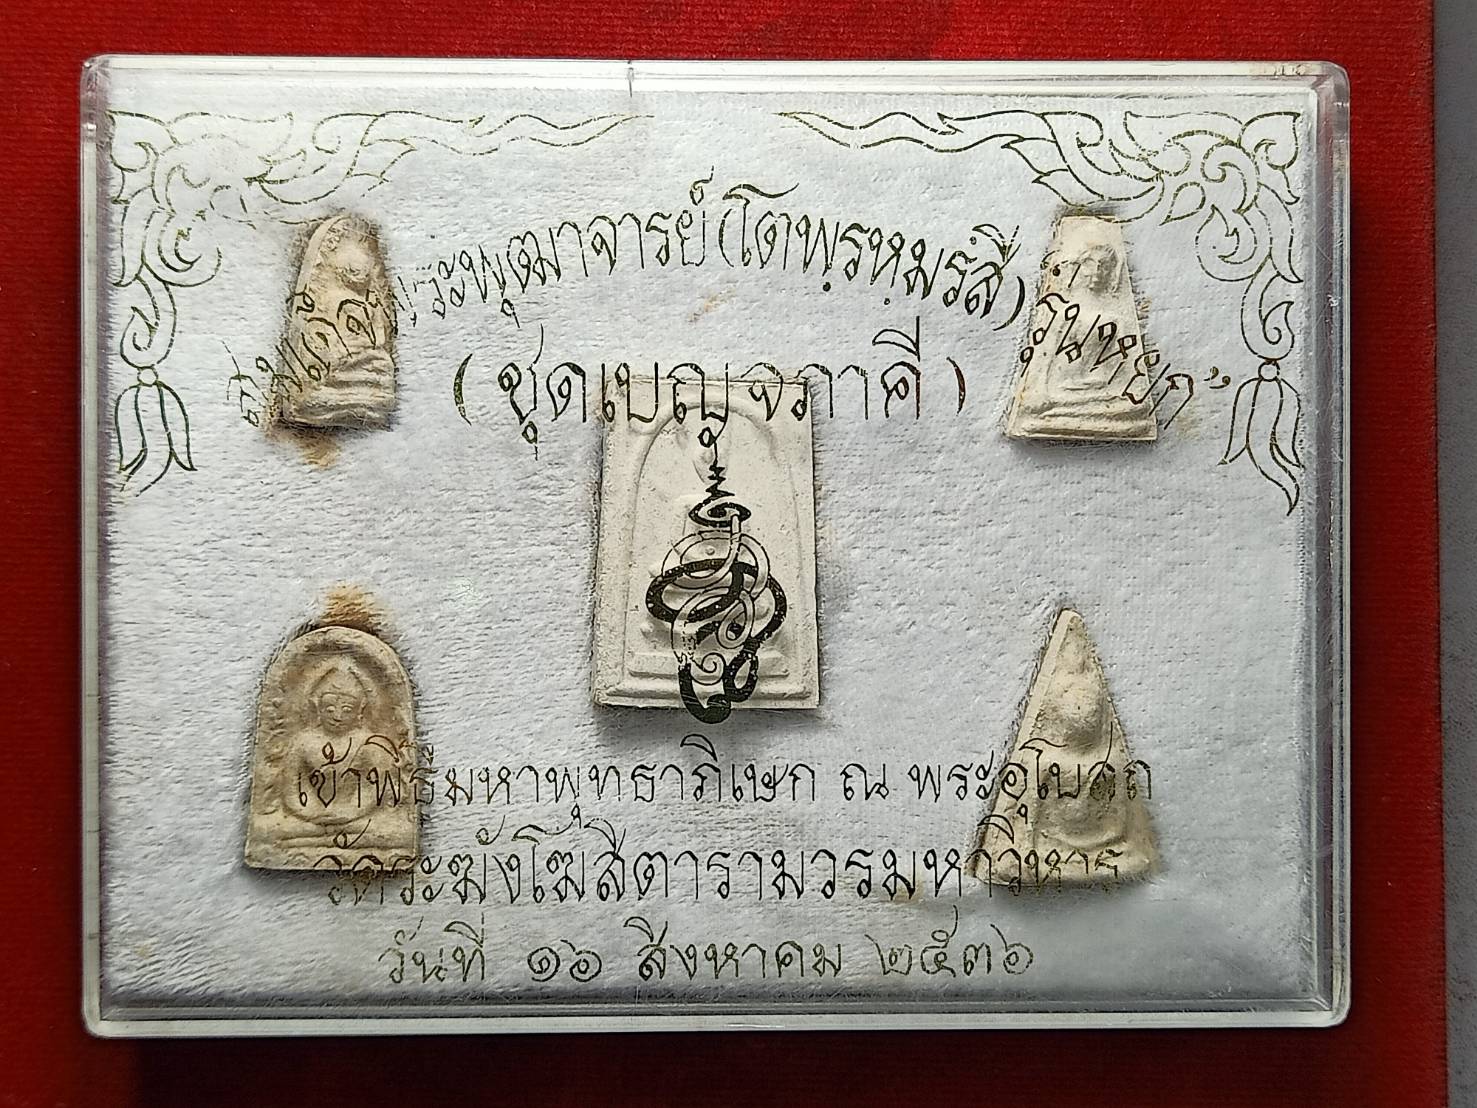 สมเด็จพระพุฒาจารย์(โตพฺรหฺมรํสี) "รุ่นหยก"
(ชุดเบญจภาคี)
เข้าพิธีมหาพุทธาภิเษก ณ พระอุโบสถ
วัดระฆังโฆสิตารามวรมหาวิหาร
วันที่ ๑๖ สิงหาคม ๒๕๓๖